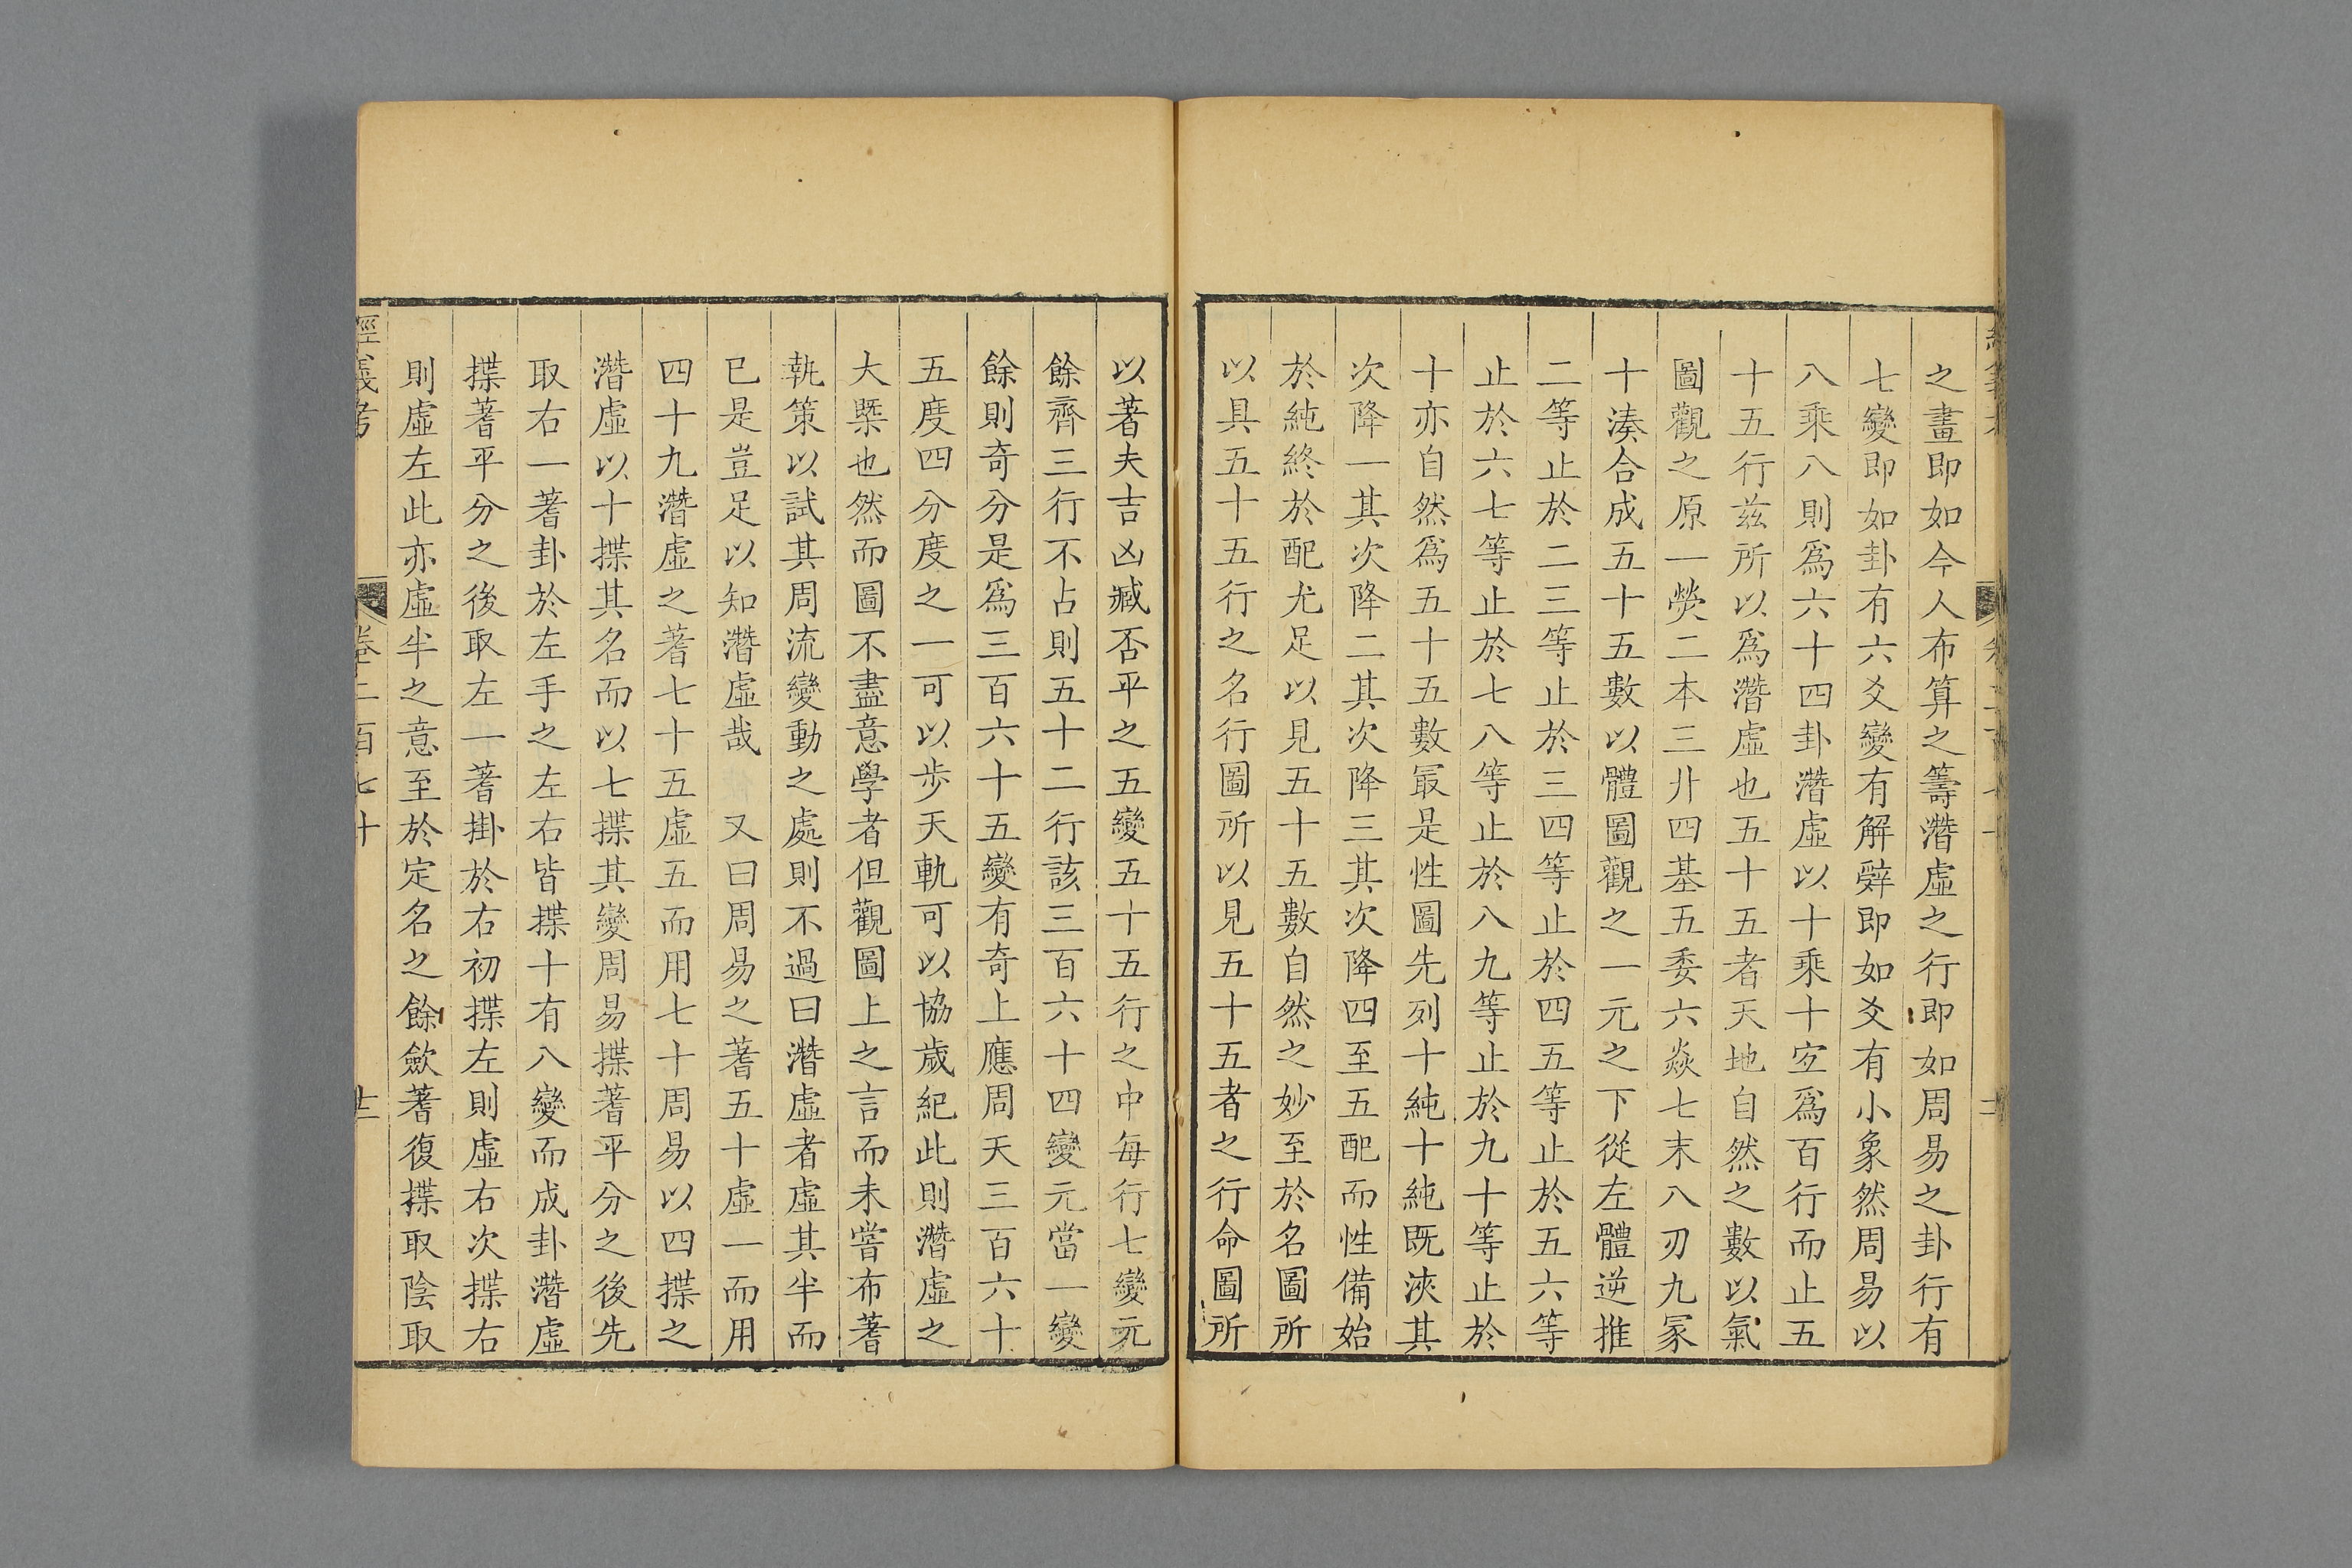 之畫即如今人布算之籌潛虛之行即如周易之卦行有
七變即如卦有六爻變有解辭即如爻有小象然周易以
八乘八則爲六十四卦潛虛以十乘十宐爲百行而止五
十五行兹所以爲潛虛也五十五者天地自然之數以氣
圖觀之原一熒二本三廾四基五委六焱七末八刃九冡
十湊合成五十五數以體圖觀之一元之下從左體逆推
二等止於二三等止於三四等止於四五等止於五六等
止於六七等止於七八等止於八九等止於九十等止於
十亦自然爲五十五數冣是性圖先列十純十純既浹其
次降一其次降二其次降三其次降四至五配而性備始
於純終於配尤足以見五十五數自然之妙至於名圖所
以具五十五行之名行圖所以見五十五者之行命圖所
以著夫吉凶臧否平之五變五十五行之中每行七變元
餘齊三行不占則五十二行該三百六十四變元當一變
餘則奇分是爲三百六十五變有奇上應周天三百六十
五度四分度之一可以歩天軌可以協歲紀此則潛虛之
大槩也然而圖不盡意學者但觀圖上之言而未嘗布蓍
執策以試其周流變動之處則不過曰潛虛者虛其半而
已是豈足以知潛虛哉 又曰周易之蓍五十虛一而用
四十九潛虛之蓍七十五虛五而用七十周易以四揲之
潛虛以十揲其名而以七揲其變周易揲蓍平分之後先
取右一蓍卦於左手之左右皆揲十有八變而成卦潛虛
揲蓍平分之後取左一蓍掛於右初揲左則虛右次揲右
則虛左此亦虛半之意至於定名之餘歛蓍復揲取陰取
經義考 卷二百七十 十二